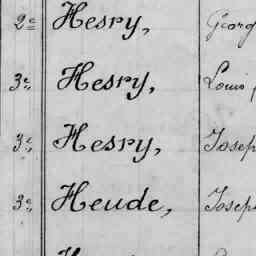 2e Hesry, Georg
3e Hesry, Louis
3e Hesry, Joseph
3e Heude, Joseph